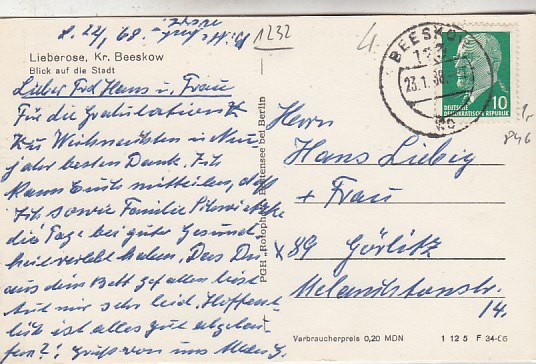 d. 22/1. 68.
1232
Lieberose, Kr. Beeskow
Blick auf die Stadt
Lieber Frd Hans u. Frau
Für die Gratulation
zu Weihnachten u Neu
jahr besten Dank. Ich
kann Euch mitteilen, daß
Ich sowie Familie
die Tage bei guter Gesund
heit verlebt haben. Das Du
aus dem Bett gefallen bist
tut mir sehr leid. Hoffent
lich ist alles gut abgelau
fen?! Gruß von uns
PGH „Rotophot" Bestensee bei Berlin
BEESKOW
123
23.1.68
DEUTSCHE
DEMOKRATISCHE REPUBLIK
10
P46
Herrn
Hans Liebig
+ Frau
X 89 Görlitz
Melanchtonstr.
14.
Verbraucherpreis 0,20 MDN
1 12 5 F 34-06